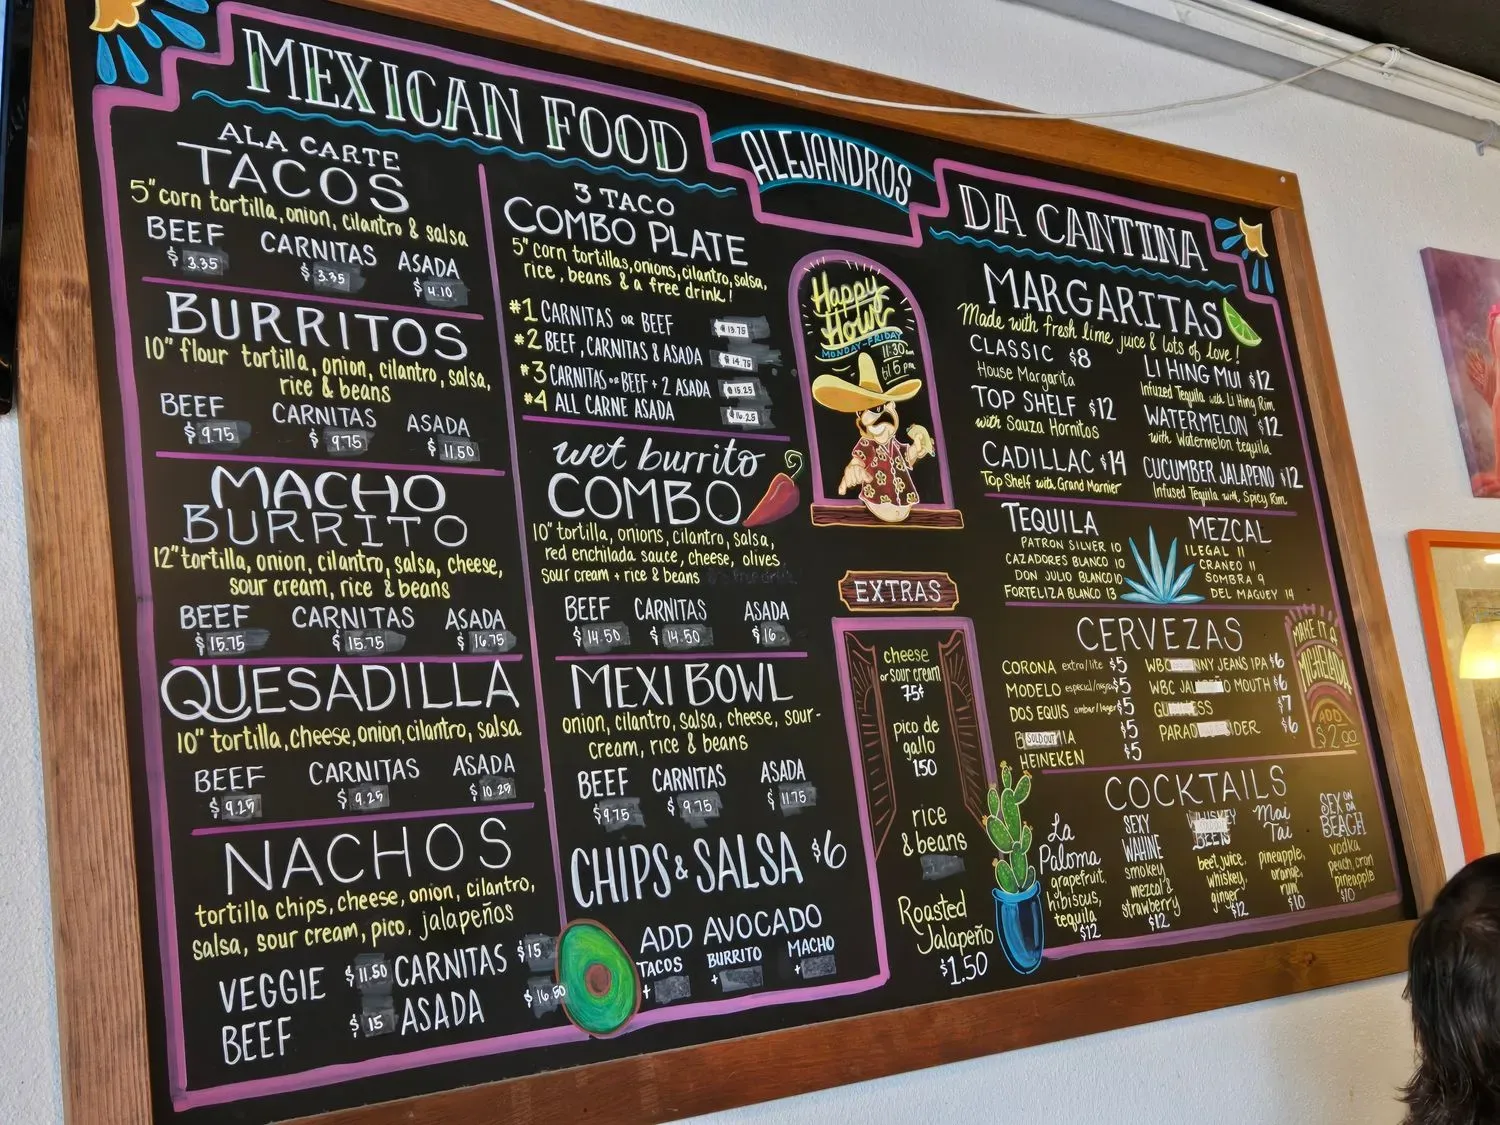 MEXICAN FOOD
ALEJANDROS
DA CANTINA
ALA CARTE
TACOS
5" corn tortilla, onion, cilantro & salsa
BEEF CARNITAS ASADA
$3.35 $3.35 $4.10
BURRITOS
10" flour tortilla, onion, cilantro, salsa,
rice & beans
BEEF CARNITAS ASADA
$9.75 $9.75 $11.50
MACHO
BURRITO
12" tortilla, onion, cilantro, salsa, cheese,
sour cream, rice & beans
BEEF CARNITAS ASADA
$15.75 $15.75 $16.75
QUESADILLA
10" tortilla, cheese, onion, cilantro, salsa
BEEF CARNITAS ASADA
$9.25 $9.25 $10.25
NACHOS
tortilla chips, cheese, onion, cilantro,
salsa, sour cream, pico, jalapeños
VEGGIE $11.50 CARNITAS $15
BEEF $15 ASADA $16.50
3 TACO
COMBO PLATE
5" corn tortillas, onions, cilantro, salsa,
rice, beans & a free drink!
#1 CARNITAS OR BEEF $13.75
#2 BEEF, CARNITAS & ASADA $14.75
#3 CARNITAS OR BEEF + 2 ASADA $15.25
#4 ALL CARNE ASADA $16.25
wet burrito
COMBO
10" tortilla, onions, cilantro, salsa,
red enchilada sauce, cheese, olives
sour cream + rice & beans
BEEF CARNITAS ASADA
$14.50 $14.50 $16
MEXI BOWL
onion, cilantro, salsa, cheese, sour-
cream, rice & beans
BEEF CARNITAS ASADA
$9.75 $9.75 $11.75
CHIPS & SALSA $6
ADD AVOCADO
TACOS BURRITO MACHO
+ + +
Happy
Hour
MONDAY-FRIDAY
11:30am
til 5pm
EXTRAS
cheese
or sour cream
75¢
pico de
gallo
1.50
rice
& beans
Roasted
Jalapeño
$1.50
MARGARITAS
Made with fresh lime juice & lots of love!
CLASSIC $8
House Margarita
TOP SHELF $12
with Sauza Hornitos
CADILLAC $14
Top Shelf with Grand Marnier
LI HING MUI $12
Infused Tequila with Li Hing Rim
WATERMELON $12
with Watermelon tequila
CUCUMBER JALAPENO $12
Infused Tequila with Spicy Rim
TEQUILA
PATRON SILVER 10
CAZADORES BLANCO 10
DON JULIO BLANCO 10
FORTELIZA BLANCO 13
MEZCAL
ILEGAL 11
CRANEO 11
SOMBRA 9
DEL MAGUEY 14
CERVEZAS
CORONA extra/lite $5
MODELO especial/negra $5
DOS EQUIS amber/lager $5
SOLD OUT $5
HEINEKEN $5
WBC NNY JEANS IPA $6
WBC JAL O MOUTH $6
GU ESS $7
PARAD DER $6
MAKE IT A
MICHELADA
ADD
$2.00
COCKTAILS
La
Paloma
grapefruit,
hibiscus,
tequila
$12
SEXY
WAHINE
smokey
mezcal &
strawberry
$12
WHISKEY
beet juice,
whiskey,
ginger
$12
Mai
Tai
pineapple,
orange,
rum
$10
SEX ON
DA
BEACH
vodka
peach, cran
pineapple
$10